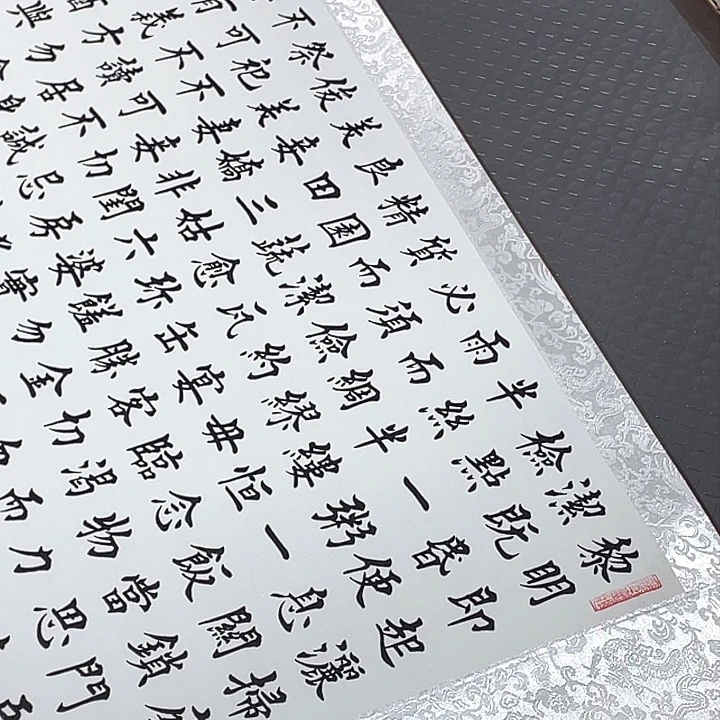 黎明即起灑掃
潔既昏便息關鎖門
檢點一粥一飯當思
半絲半縷恆念物力
雨而綢繆毋臨渴而
必須儉約宴客切勿
質而潔瓦缶勝金
精園蔬愈珍饈勿
良田三姑六婆實
美妾嬌非閨房
俊美妻妾切忌
祭祀不可不誠
不可不讀居身
有義方勿
酒與